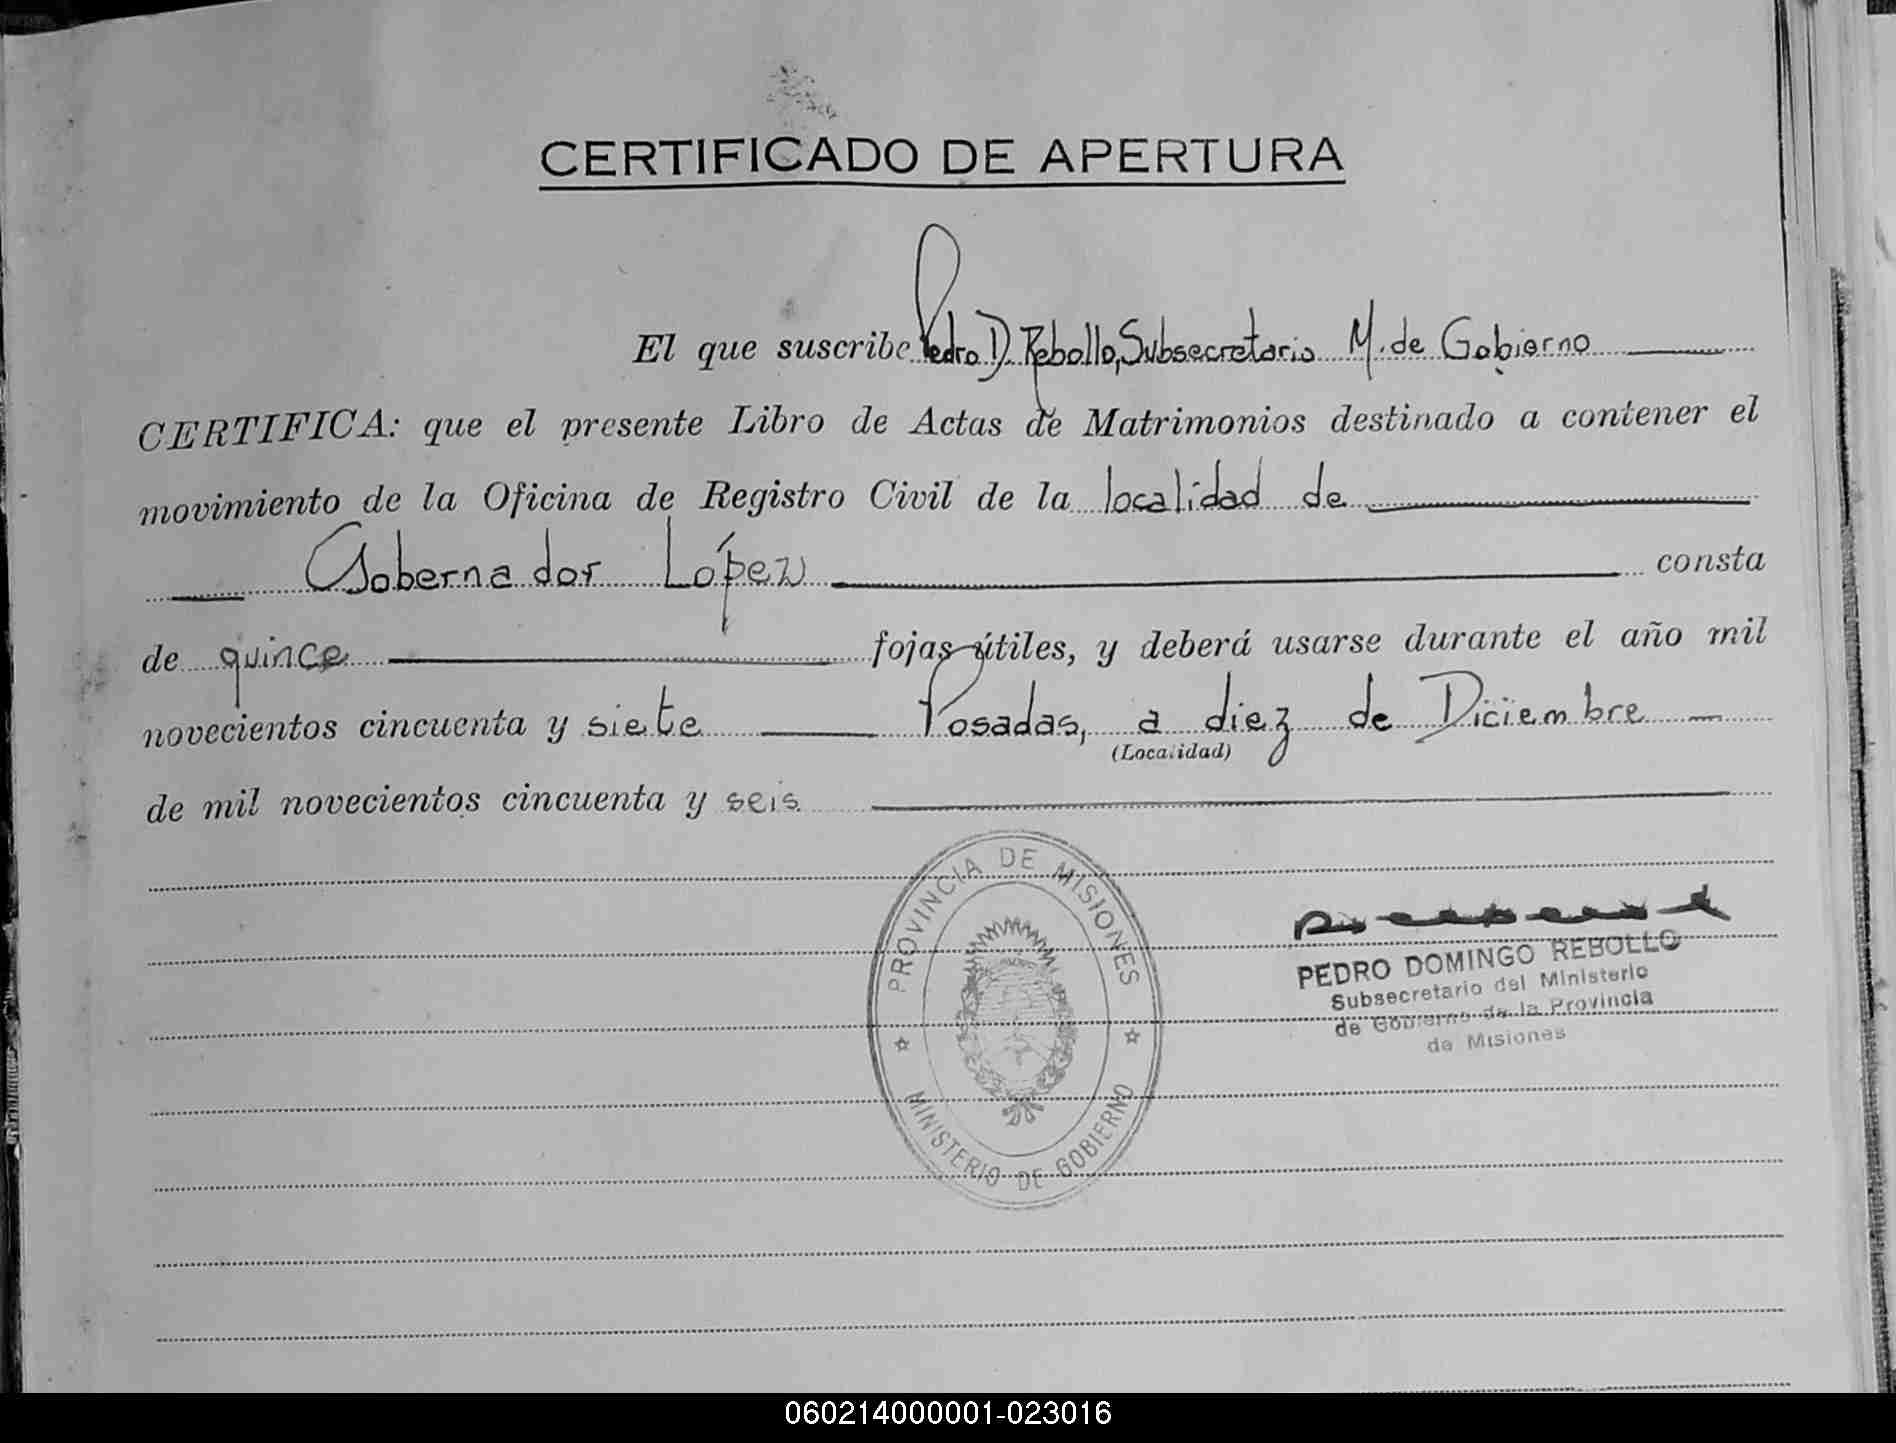 CERTIFICADO DE APERTURA
El que suscribe Pedro D. Rebollo, Subsecretario M. de Gobierno
CERTIFICA: que el presente Libro de Actas de Matrimonios destinado a contener el
movimiento de la Oficina de Registro Civil de la localidad de
Gobernador López consta
de quince fojas útiles, y deberá usarse durante el año mil
novecientos cincuenta y siete Posadas, a diez de Diciembre
(Localidad)
de mil novecientos cincuenta y seis
PROVINCIA DE MISIONES
MINISTERIO DE GOBIERNO
PEDRO DOMINGO REBOLLO
Subsecretario del Ministerio
de Gobierno de la Provincia
de Misiones
060214000001-023016